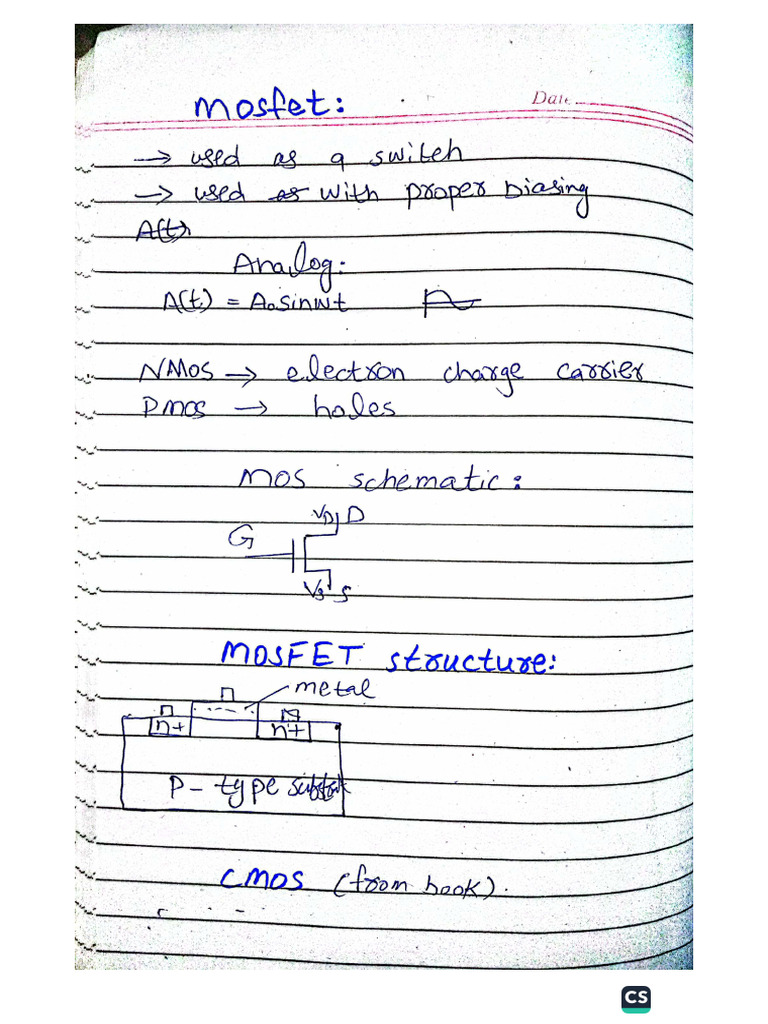 Mosfet:
Date
→ used as a switch
→ used as with proper biasing
A(t)
Analog:
A(t) = A₀sinwt
NMOS → electron charge carrier
PMOS → holes
MOS schematic:
VD D
G
Vs S
MOSFET structure:
metal
n+ n+
P-type
CMOS (from book).
CS